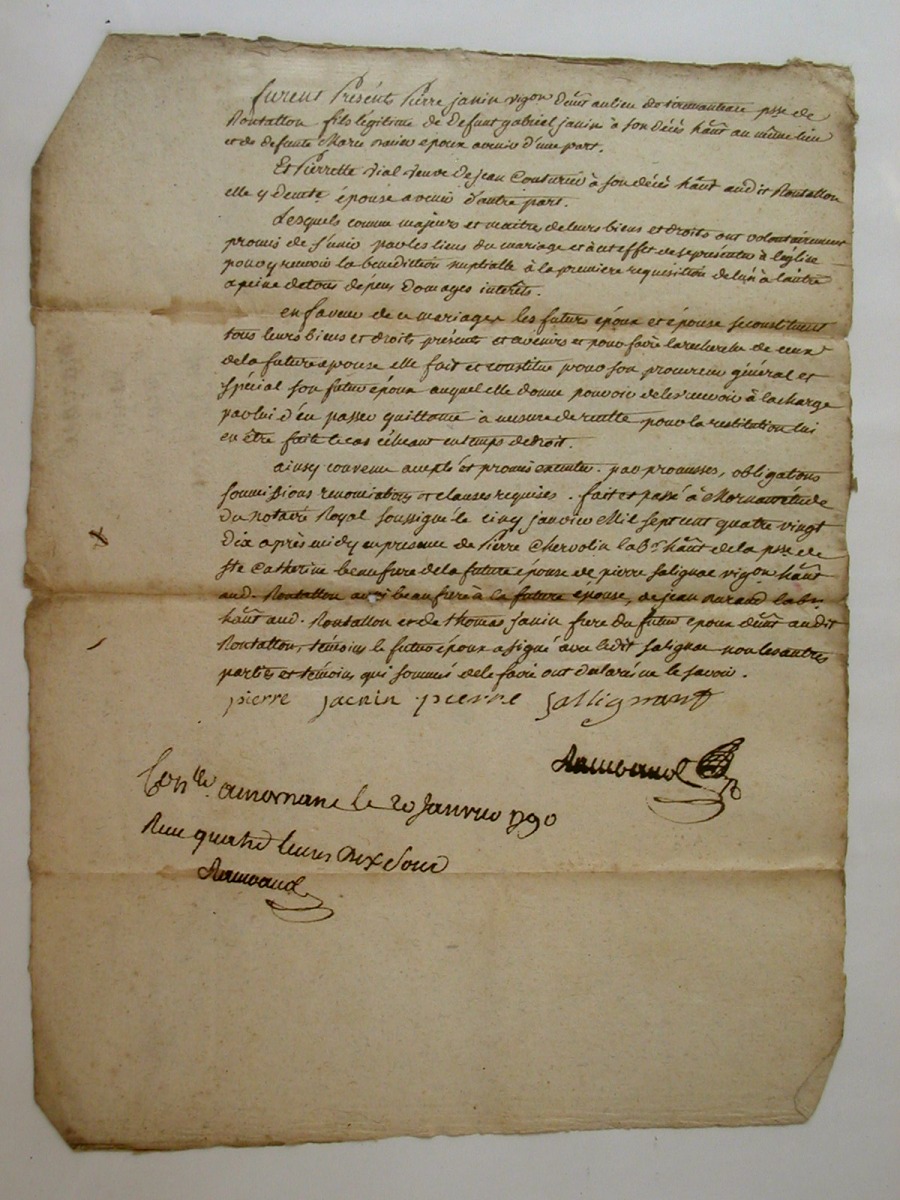 furent Présents Pierre janin vigon demt au lieu de psse de
Rontallon fils légitime de defunt gabriel janin à son décès habt au même lieu
et de defunte Marie époux avenir d'une part.
Et Pierrette Vial Veuve de jean Couturier à son décès habt audit Rontallon
elle y demte épouse avenir d'autre part.
Lesquels comme majeurs et maitre de leurs biens et droits ont volontairement
promis de s'unir par les liens du mariage et à cet effet de se présenter à l'église
pour y recevoir la bénédiction nuptialle à la première requisition de l'un à l'autre
a peine de tous depens domages interets.
en faveur de ce mariage les futurs époux et épouse se constituent
tous leurs biens et droits présents et avenirs et pour faire la recherche de ceux
de la future epouse elle fait et constitue pour son procureur général et
spécial son futur époux auquel elle donne pouvoir de les recevoir à la charge
par lui d'en passer quittance à mesure de recette pour la restitution lui
en être faite le cas échéant en temps de droit.
ainsy convenu accepté et promis executer par promesses, obligations
soumissions renonciations et clauses requises. fait et passé à Mornant étude
du notaire Royal soussigné le cinq janvier Mil sept cent quatre vingt
dix après midy en presence de Pierre Chervolin labr habt de la psse de
Ste Catherine beaufrere de la future épouse de pierre salignac vigon habt
aud. Rontallon aussi beaufrere à la future épouse, de jean Durand labr
habt aud. Rontallon et de thomas janin frere du futur epoux demt audit
Rontallon, témoins le futur époux a signé avec ledit salignac non les autres
parties et témoins qui sommés de le faire ont déclaré ne le savoir.
pierre jacnin pierre
Ramboaud
Conllé a mornant le 20 janvier 1790
Reçu quatre livres dix sous
Ramboaud